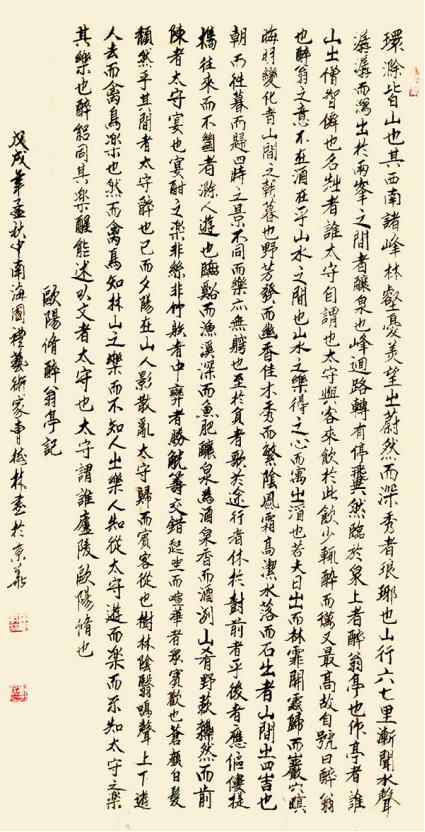 環滁皆山也其西南諸峰林壑憂美望之蔚然而深秀者琅琊也山行六七里漸聞水聲
潺潺而瀉出於兩峯之間者釀泉也峰迴路轉有亭翼然臨於泉上者醉翁亭也作亭者誰
山之僧智僊也名之者誰太守自謂也太守與客來飲於此飲少輒醉而又最高故自號曰醉翁
也醉翁之意不在酒在乎山水之間也山水之樂得之心而寓之酒也若夫日出而林霏開雲歸而巖穴暝
晦明變化者山間之朝暮也野芳發而幽香佳木秀而繁陰風霜高潔水落而石出者山間之四時也
朝而往暮而歸四時之景不同而樂亦無窮也至於負者歌於途行者休於樹前者乎後者應傴僂提
攜往來而不絕者滁人遊也臨谿而漁溪深而魚肥釀泉為酒泉香而酒洌山肴野蔌雜然而前
陳者太守宴也宴酣之樂非絲非竹射者中弈者勝觥籌交錯起坐而喧嘩者眾賓歡也蒼顏白髮
頹然乎其間者太守醉也已而夕陽在山人影散亂太守歸而賓客從也樹林陰翳鳴聲上下遊
人去而禽鳥樂也然而禽鳥知林山之樂而不知人之樂人知從太守遊而樂而不知太守之樂
其樂也醉能同其樂醒能述以文者太守也太守謂誰廬陵歐陽脩也
歐陽脩醉翁亭記
戊戌年孟秋中南海國禮藝術家曹松林書於京華